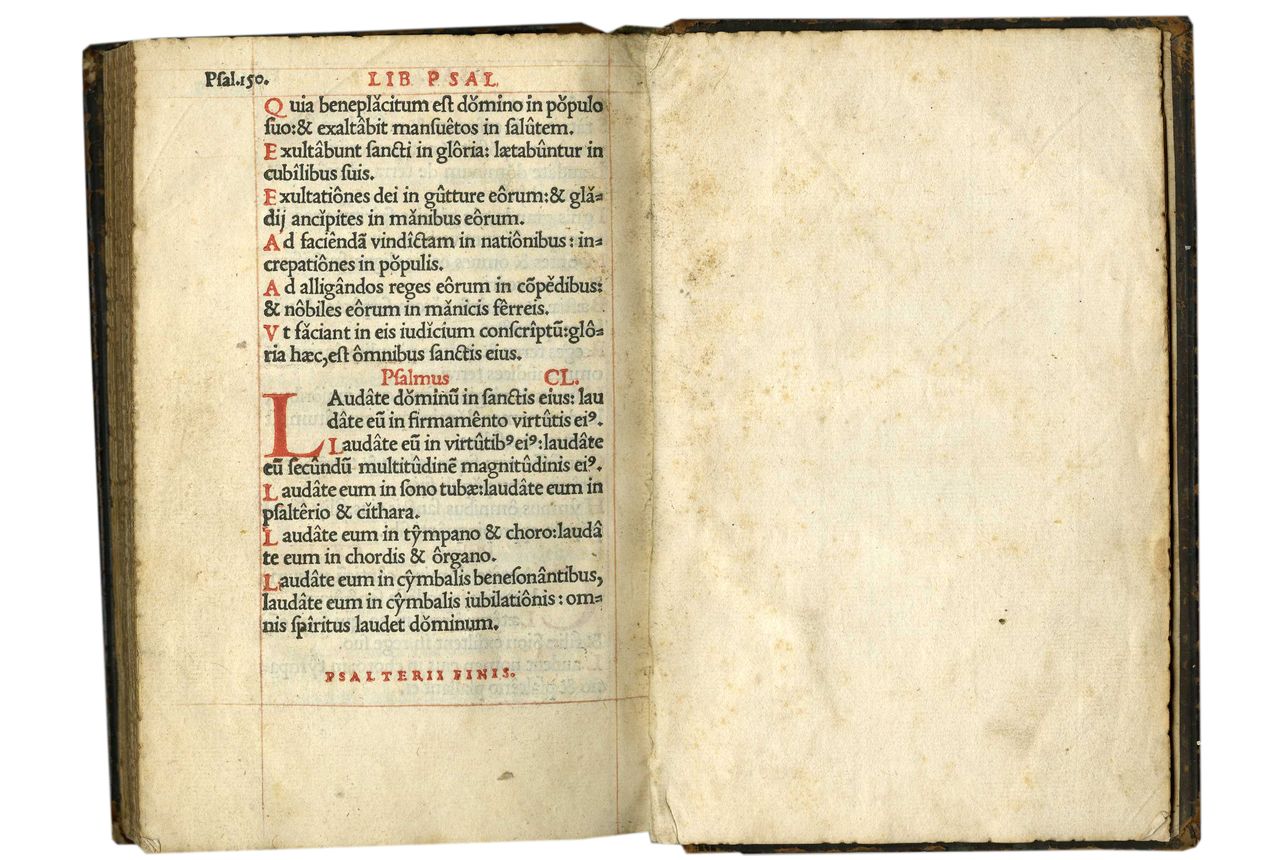 Pſal.150. LIB PSAL.
Quia beneplăcitum eſt dŏmino in pŏpulo
ſuo:& exaltâbit manſuêtos in ſalûtem.
Exultâbunt ſancti in glôria: lætabûntur in
cubîlibus ſuis.
Exultatiônes dei in gûtture eôrum:& glă⸗
dij ancĭpites in mănibus eôrum.
Ad faciêndã vindîctam in natiônibus: in⸗
crepatiônes in pŏpulis.
Ad alligândos reges eôrum in cõpĕdibus:
& nôbiles eôrum in mănicis fêrreis.
Vt făciant in eis iudĭcium conſcrîptũ:glô⸗
ria hæc,eſt ômnibus ſanctis eius.
Pſalmus CL.
LAudâte dŏminũ in ſanctis eius: lau
dâte eũ in firmamênto virtûtis eiꝰ.
Laudâte eũ in virtûtibꝰ eiꝰ:laudâte
eũ ſecûndũ multitûdinẽ magnitûdinis eiꝰ.
Laudâte eum in ſono tubæ:laudâte eum in
pſaltêrio & cĭthara.
Laudâte eum in tŷmpano & choro:laudâ
te eum in chordis & ôrgano.
Laudâte eum in cŷmbalis beneſonântibus,
laudâte eum in cŷmbalis iubilatiônis: om⸗
nis ſpĭritus laudet dŏminum.
PSALTERII FINIS.